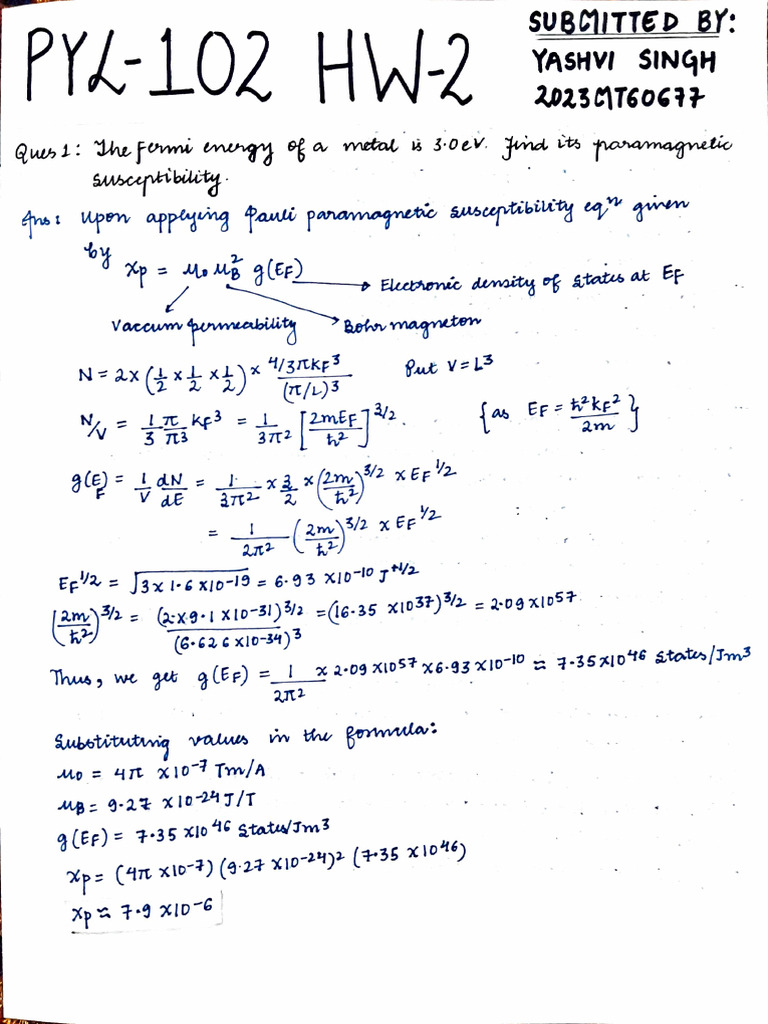 PYL-102 HW-2
SUBMITTED BY:
YASHVI SINGH
2023MT60677
Ques 1: The fermi energy of a metal is 3.0 eV. Find its paramagnetic
susceptibility.
Ans: Upon applying Pauli paramagnetic susceptibility eqⁿ given
by
χp = μ₀ μB² g(EF) → Electronic density of states at EF
Vaccum permeability Bohr magneton
N = 2 × (1/2 × 1/2 × 1/2) × 4/3 π kF³ / (π/L)³ Put V = L³
N/V = 1/3 π/π³ kF³ = 1/3π² [2mEF/ħ²]^3/2 {as EF = ħ²kF²/2m}
g(EF) = 1/V dN/dE = 1/3π² × 3/2 × (2m/ħ²)^3/2 × EF^1/2
= 1/2π² (2m/ħ²)^3/2 × EF^1/2
EF^1/2 = √3 × 1.6 × 10^-19 = 6.93 × 10^-10 J^+1/2
(2m/ħ²)^3/2 = (2 × 9.1 × 10^-31)^3/2 / (6.626 × 10^-34)³ = (16.35 × 10^37)^3/2 = 2.09 × 10^57
Thus, we get g(EF) = 1/2π² × 2.09 × 10^57 × 6.93 × 10^-10 ≈ 7.35 × 10^46 States/Jm³
Substituting values in the formula:
μ₀ = 4π × 10^-7 Tm/A
μB = 9.27 × 10^-24 J/T
g(EF) = 7.35 × 10^46 States/Jm³
χp = (4π × 10^-7) (9.27 × 10^-24)² (7.35 × 10^46)
χp ≈ 7.9 × 10^-6